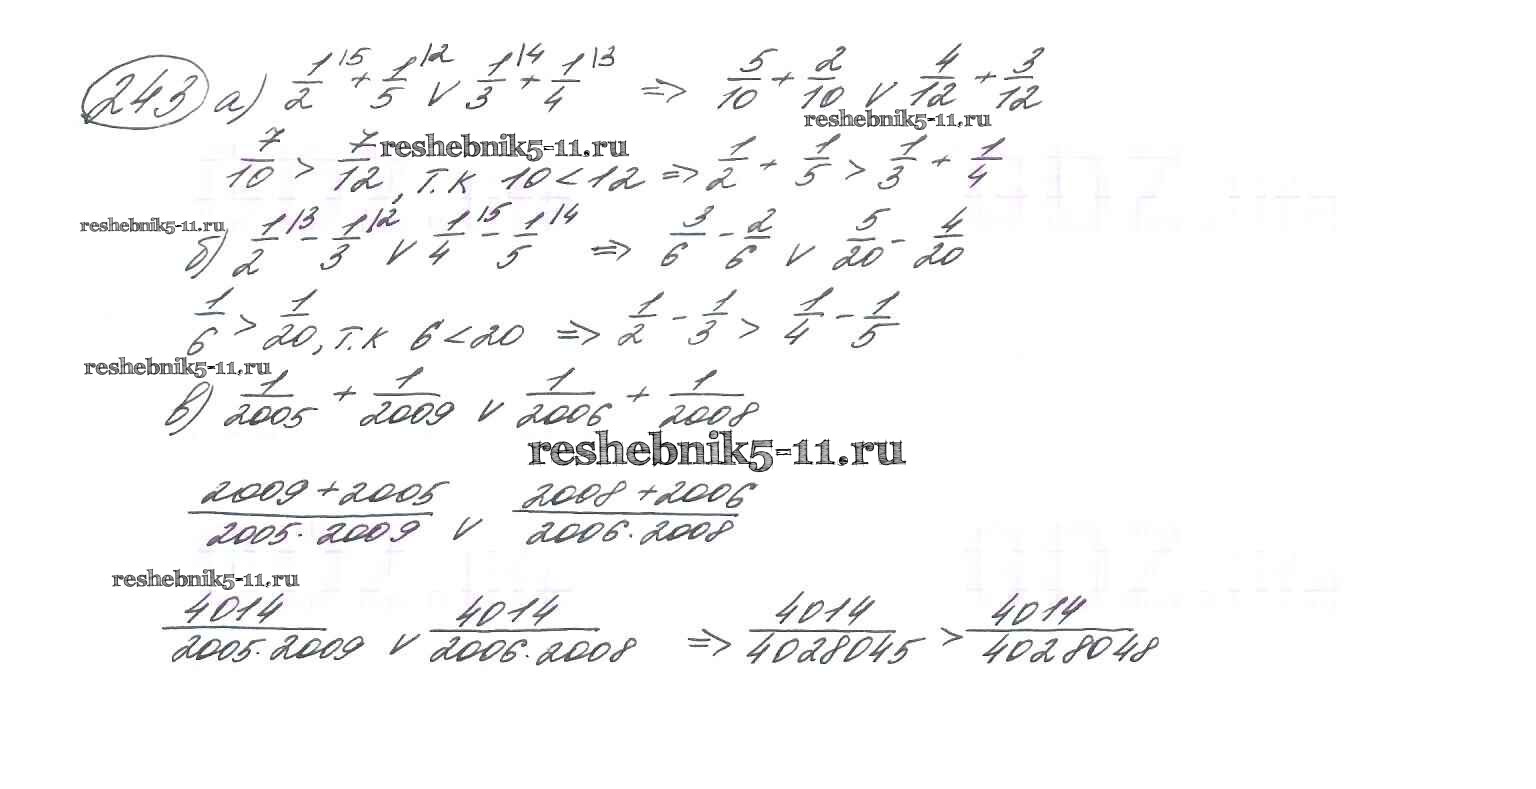 243 а) 1/2 |5 + 1/5 |2 V 1/3 |4 + 1/4 |3 => 5/10 + 2/10 V 4/12 + 3/12
reshebnik5-11.ru
7/10 > 7/12, т.к 10 < 12 => 1/2 + 1/5 > 1/3 + 1/4
reshebnik5-11.ru
reshebnik5-11.ru
б) 1/2 |3 - 1/3 |2 V 1/4 |5 - 1/5 |4 => 3/6 - 2/6 V 5/20 - 4/20
1/6 > 1/20, т.к 6 < 20 => 1/2 - 1/3 > 1/4 - 1/5
reshebnik5-11.ru
в) 1/2005 + 1/2009 V 1/2006 + 1/2008
reshebnik5-11.ru
2009+2005/2005·2009 V 2008+2006/2006·2008
reshebnik5-11.ru
4014/2005·2009 V 4014/2006·2008 => 4014/4028045 > 4014/4028048